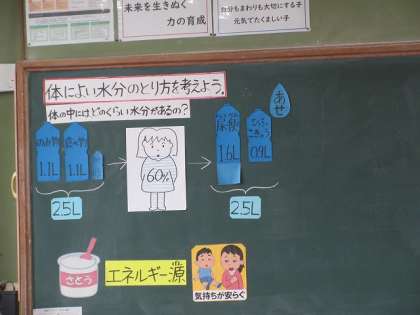 未来を生きぬく
力の育成
自分もまわりも大切にする子
元気でたくましい子
体によい水分のとり方を考えよう。
体の中にはどのくらい水分があるの?
のみ物
1.1L
食べ物
1.1L
2.5L
60%
尿・便
1.6L
0.9L
あせ
2.5L
さとう
エネルギー源
気持ちが安らぐ